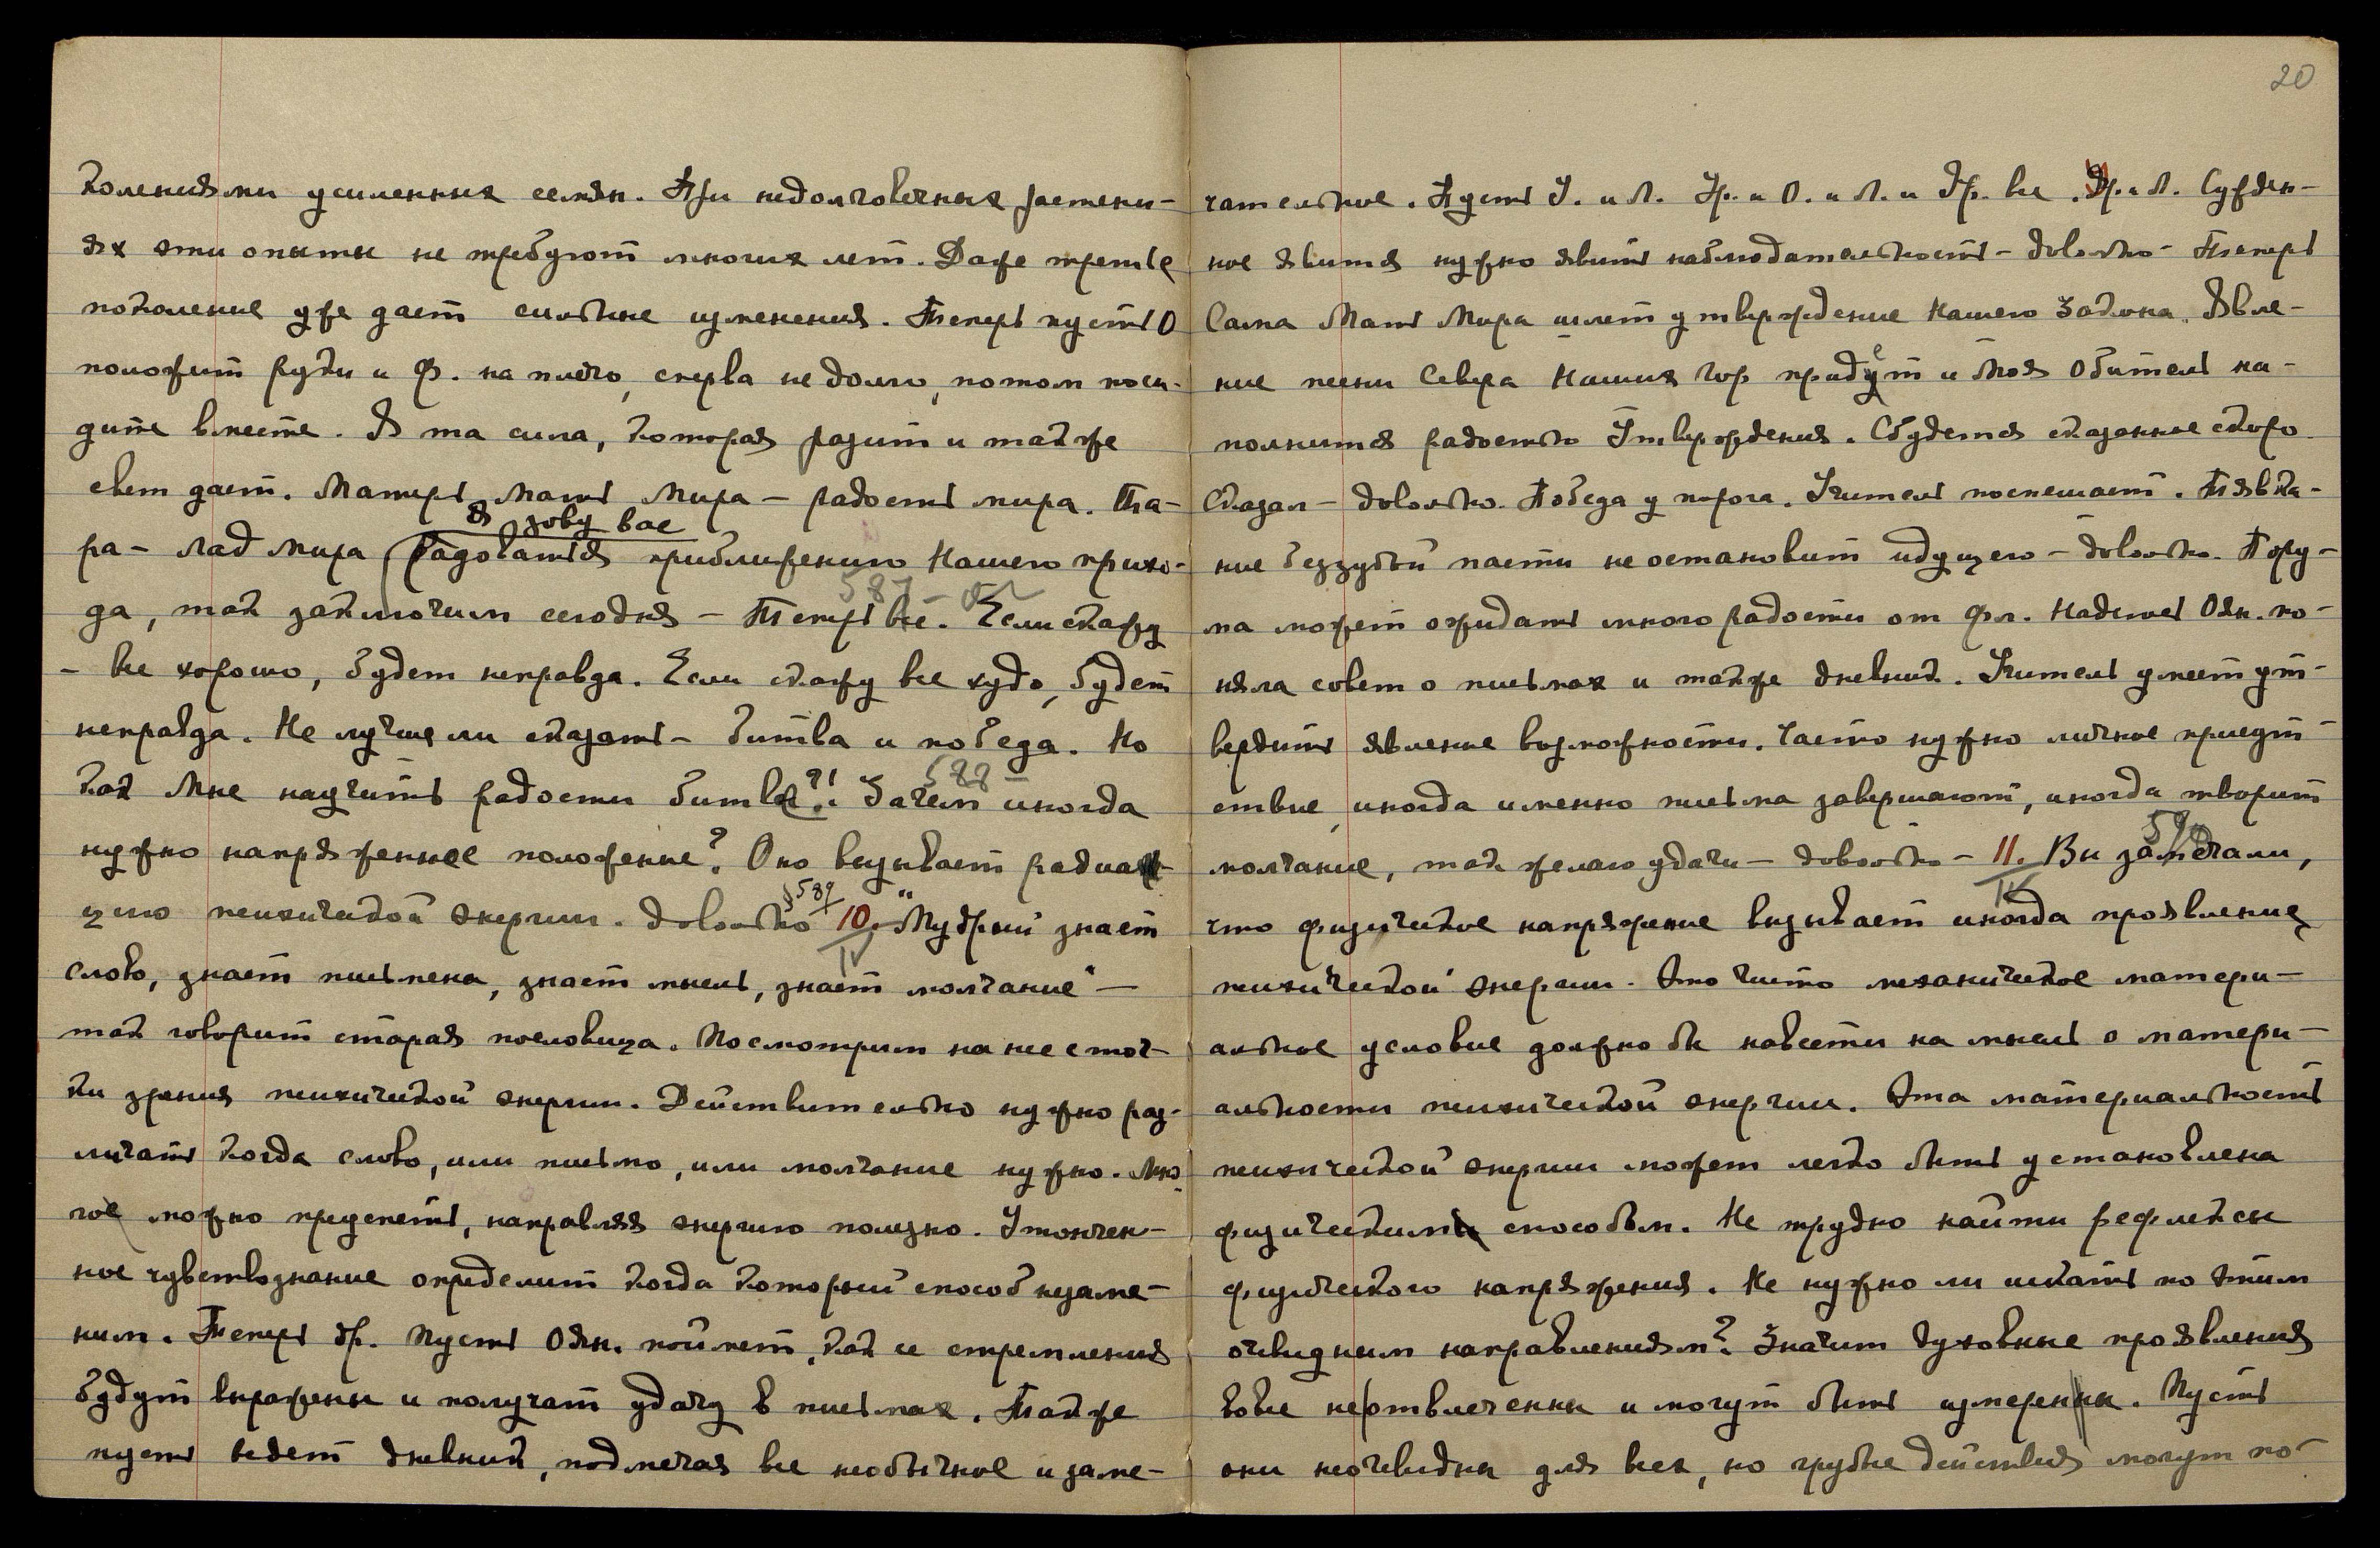 колениями усиленных семян. При недолговечных растени-
ях эти опыты не требуют многих лет. Даже третье
поколение уже дает сильные изменения. Теперь пусть О
положит руки и Ф. на плечо, сперва не долго, потом поси-
дите вместе. Я та сила, которая разит и также
свет дает. Матерь Мать Мира – радость мира. Та-
я зову вас
ра – лад мира радоваться приближению Нашего прихо-
587
да, так заключим сегодня – Теперь все. Если скажу
– все хорошо, будет неправда. Если скажу все худо, будет
неправда. Не лучше ли сказать – битва и победа. Но
588
как Мне научить радости битве?! Зачем иногда
нужно напряженное положение? Оно вызывает радиа-
§589
цию психической энергии. Довольно 10. IV "Мудрый знает
слово, знает письмена, знает мысль, знает молчание" –
так говорит старая пословица. Посмотрим на нее с точ-
ки зрения психической энергии. Действительно нужно раз-
личать когда слово, или письмо, или молчание нужно. Мно-
гое можно предуспеть, направляя энергию полезно. Утончен-
ное чувствознание определит когда который способ незаме-
ним. Теперь др. Пусть Оян. поймет, как ее стремления
будут выражены и получат удачу в письмах. Также
пусть ведет дневник, подмечая все необычное и заме-
20
чательное. Пусть У. и Л. Ур. и О. и Л. и Др. все. Др. и Л. Сужден-
ное явится нужно явить наблюдательность – довольно – Теперь
Сама Мать Мира шлет утверждение Нашего Закона. Явле-
ние песни Севера Наших Гор придет и твоя Обитель на-
полнится радостью Утверждения. Сбудется сказанное скоро
Сказал – довольно. Победа у порога. Учитель поспешает. Тявка-
ние беззубой пасти не остановит идущего – довольно. Пору-
ма может ожидать много радости от Фл. Надеюсь Оян. по-
няла совет о письмах и также дневник. Учитель умеет ут-
вердить явление возможности. Часто нужно личное присут-
ствие, иногда именно письма завершают, иногда творит
590
молчание, так желаю удачи – довольно – 11. IV Вы замечали,
что физическое напряжение вызывает иногда проявление
психической энергии. Это чисто механическое матери-
альное условие должно бы навести на мысль о матери-
альности психической энергии. Эта материальность
психической энергии может легко быть установлена
физическим способом. Не трудно найти рефлексы
физического напряжения. Не нужно ли искать по этим
очевидным направлениям? Значит духовные проявления
вовсе не отвлеченны и могут быть измерены. Пусть
они неочевидны для всех, но грубые действия могут по-